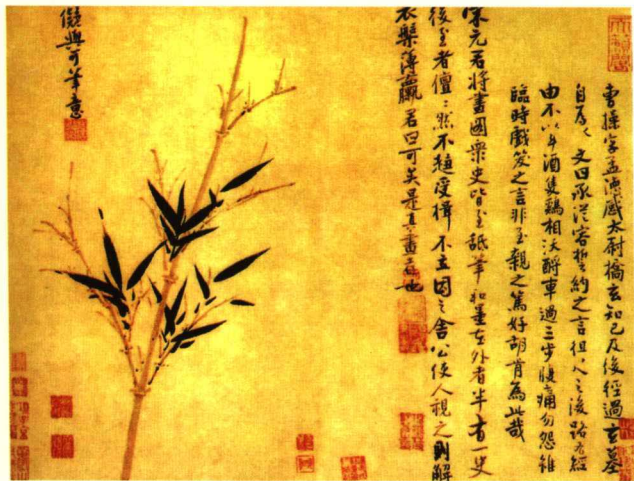 曹操字孟德感太尉橋玄知己及後經過玄墓
自為文曰承從容誓約之言徂之後路有經
由不以斗酒隻鷄相沃酹車過三步腹痛勿怨雖
臨時戲笑之言非至親之篤好胡肯為此哉
宋元君將畫圖衆史皆至舐筆和墨在外者半有一史
後至者儃々然不趨受揖不立因之舍公使人視之則解
衣槃薄臝君曰可矣是真畫者也
擬與可筆意
天籟閣